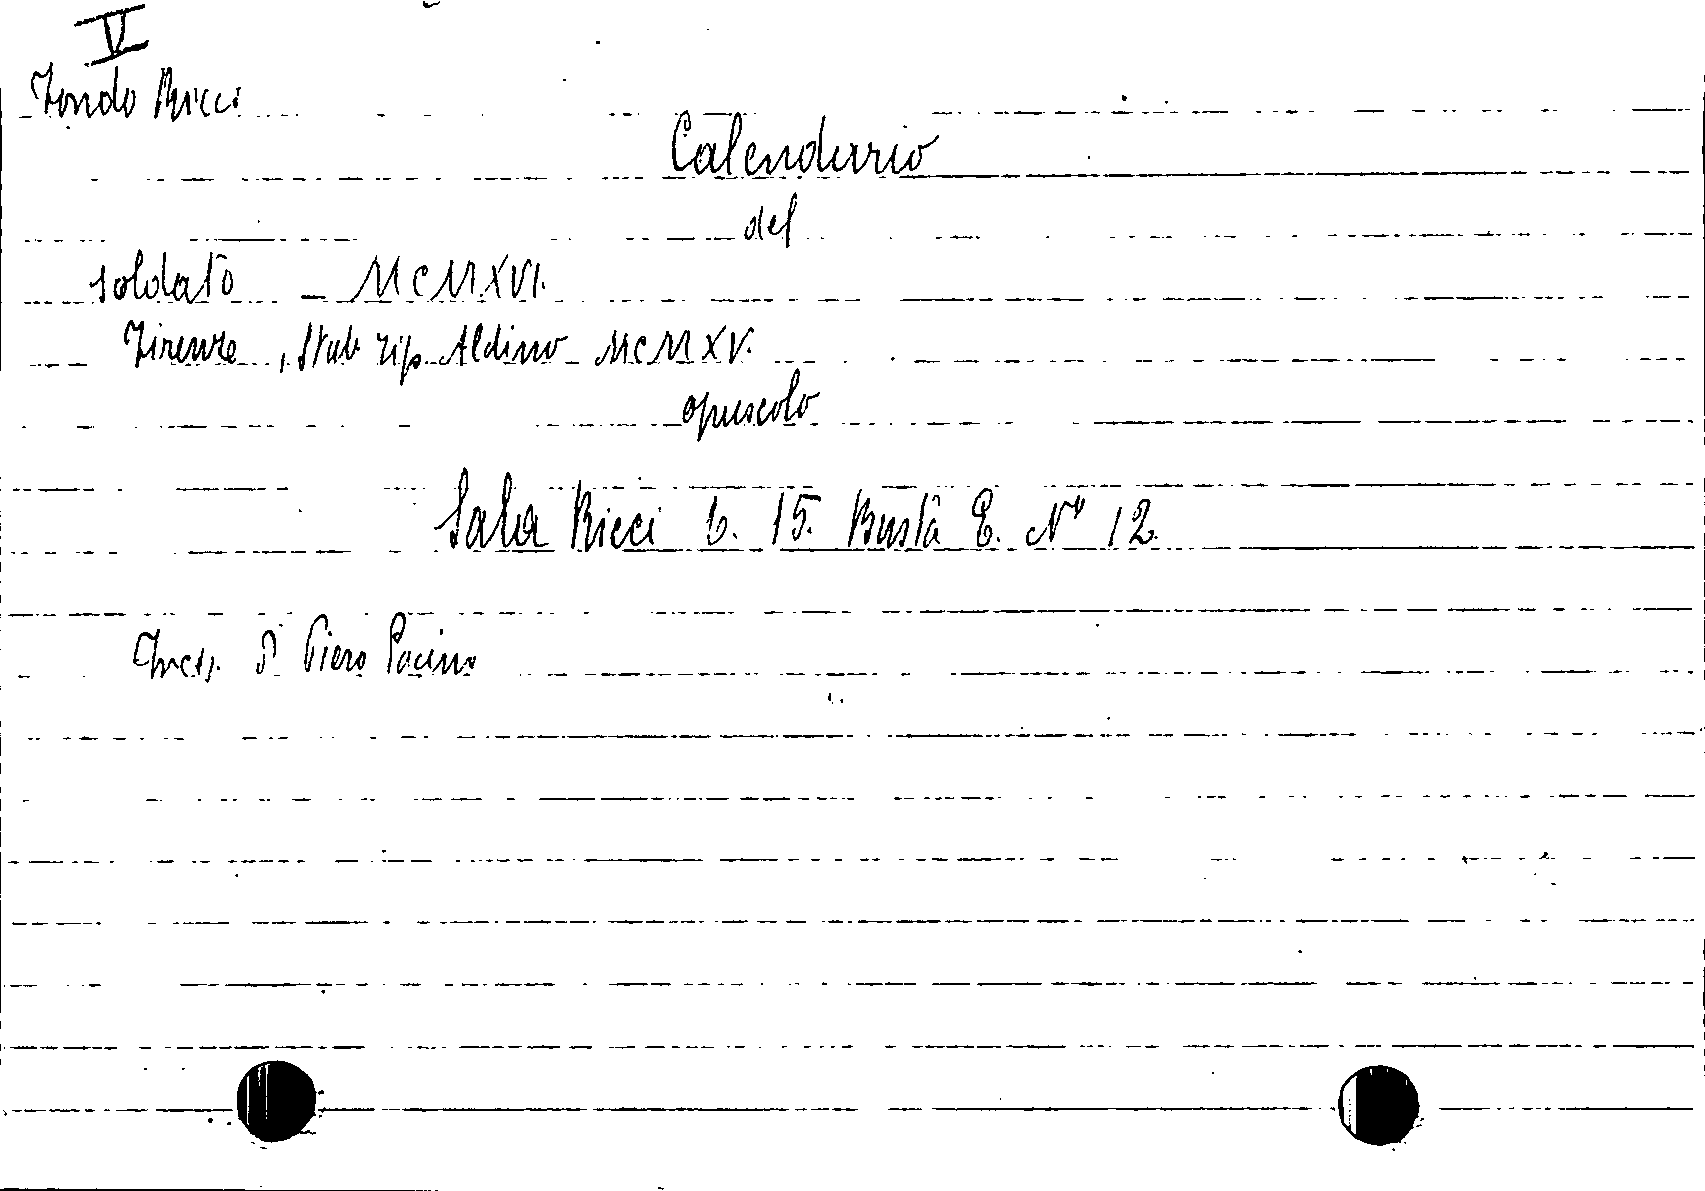 V
Fondo Ricci
Calendario
del
soldato - MCMXVI.
Firenze, Stab. Tip. Aldino MCMXV.
opuscolo
Sala Ricci b. 15. Busta E. N° 12.
Piero Pacini